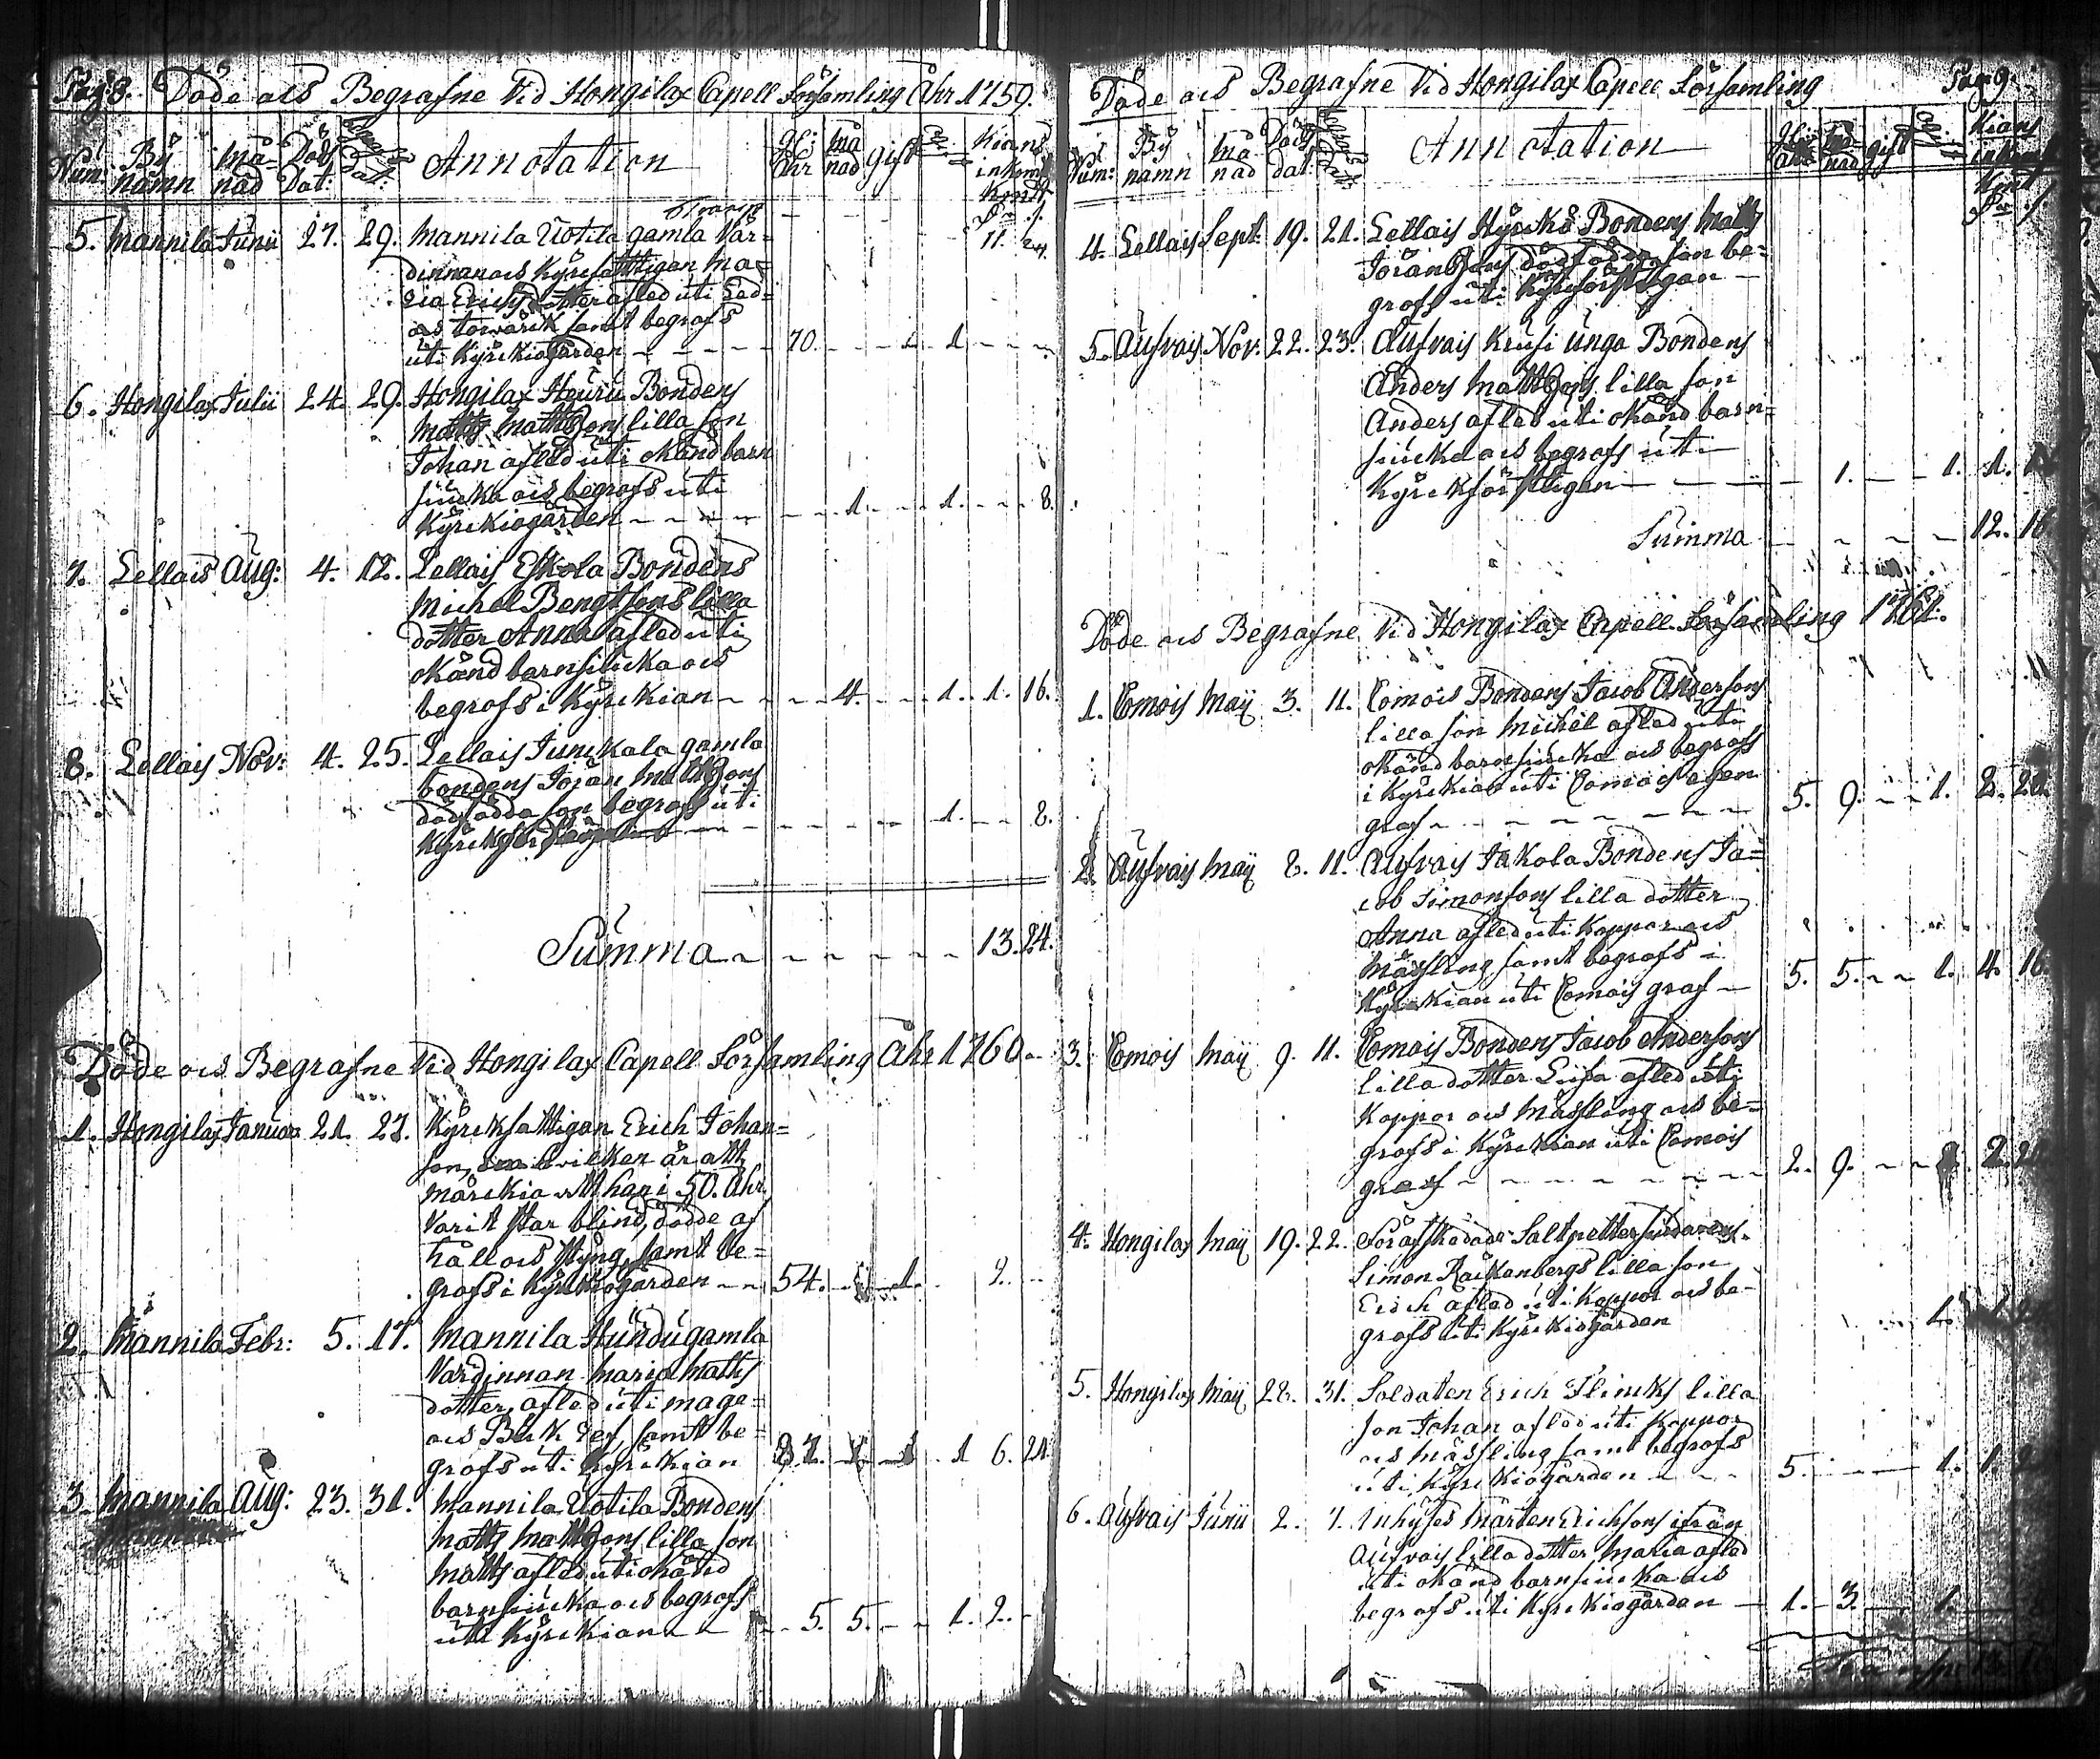 Pag: 8. Döde och Begrafne Vid Hongilax Capell Församling Åhr 1759.
Num: By namn Månad Död Dat: Begraf: Dat: Annotation Åhr Månad gift Kians inkomst
Transp 11. 24.
5. Mannila Junii 27. 29. Mannila Uotila gamla Vär=
dinnan och Kyrckfattigan Ma=
ria Erichs dotter afled uti Led=
och torrvärck samt begrofs
uti Kyrckiogården - - - - 70. - - - 1. - - -
6. Hongilax Julii 24. 29. Hongilax Heuru Bondens
Matts Mattssons lilla son
Johan afled uti okänd barn
siucka och begrofs uti
Kyrckiogården - - - - - 1. - - 1. - - 8.
7. Lellais Aug: 4. 12. Lellais Eskola Bondens
Michel Bengtssons lilla
dotter Anna afled uti
okänd barnsiucka och
begrofs i Kyrckian - - - 4. - - 1. 1. 16.
8. Lellais Nov: 4. 25. Lellais Junckala gamla
bondens Jöran Mattssons
dödfödda son begrofs uti
- - - - - 1. - - 8.
Summa - - - - - - 13. 24.
Döde och Begrafne Vid Hongilax Capell Församling Åhr 1760.
1. Hongilax Januar 21. 27. Kyrckfattigan Erich Johan=
son, hvilken är att
märckia att han i 50. Åhr
varit star blind, dödde af
håll och styng, samt be=
grofs i Kyrckiogården - - 54. - - 1. 2. -
2. Mannila Febr: 5. 17. Mannila Hundu gamla
Värdinnan Maria Matts
dotter, afled uti mage=
och Buk ref, samt be=
grofs uti Kyrckian - - 1 6. 24.
3. Mannila Aug: 23. 31. Mannila Uotila Bondens
Matts Mattssons lilla son
Matts afled uti okänd
barnsiucka och begrofs
uti Kyrckian - - - 5. 5. - - 1. 2. -
Döde och Begrafne Vid Hongilax Capell Församling Pag 9.
Num: By namn Månad Död dat: Begraf: Dat: Annotation Åhr Månad gift Kians inkomst
4. Lellais Sept: 19. 21. Lellais Hyrckö Bondens Matts
Jöranssons dödfödda son be=
grofs uti
5. Aufvais Nov: 22. 23. Aufvais Krusi unga Bondens
Anders Mattssons lilla son
Anders afled uti okänd barn=
siucka och begrofs uti
- - - 1. - - 1. 1.
Summa - - - - 12. 16
Döde och Begrafne Vid Hongilax Capell Församling 1761.
1. Comois Maij 3. 11. Comois Bondens Jacob Andersons
lilla son Michel afled uti
okänd barnsiucka och begrofs
i Kyrckian uti Comois egen
graf - - - - - - - 5. 9. - - 1. 2.
2. Aufvais Maij 8. 11. Aufvais Jakola Bondens Ja=
cob Simonsons lilla dotter
Anna afled uti Koppor och
Mässling samt begrofs i
Kyrckian uti Comois graf - 5. 5. - - 1. 4. 16.
3. Comois Maij 9. 11. Comois Bondens Jacob Andersons
lilla dotter Lisa afled uti
Koppor och Mässling och be=
grofs i Kyrckian uti Comois
graf - - - - - - - 2. 9. - - 2.
4. Hongilax Maij 19. 22. Förafskedade Saltpettersiudarens
Simon Räickenbergs lilla son
Erich afled uti Koppor och be-
grofs uti Kyrckiogården 1.
5. Hongilax Maij 28. 31. Soldaten Erich Flincks lilla
son Johan afled uti Koppor
och Mässling samt begrofs
uti Kyrckiogården - - - 5. - - - 1. 1.
6. Aufvais Junii 2. 7. Inhyses Mårten Erichsons ifrån
Aufvais lilla dotter Maria afled
uti okänd barnsiucka och
begrofs uti Kyrckiogården - 1. 3. - 1.